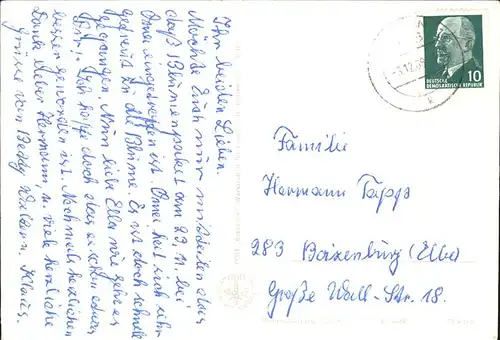 Ihr beiden Lieben.
Möchte Euch nur mitteilen das
daß Blumenpaket am 29. 11. bei
Omei eingetroffen ist. Omei hat sich sehr
gefreut zu der Blume. Es ist doch schnell
gegangen. Nun liebe Ella wie geht es
Dir? Ich hoffe doch das es schon etwas
besser geworden ist. Nochmals herzlichen
Dank lieber Hermann, u. viele herzliche
Grüße von Beddy u. Klaus.
DEUTSCHE
DEMOKRATISCHE REPUBLIK
10
Familie
Hermann Tapps
283 Boizenburg (Elbe)
Große Wall-Str. 18.